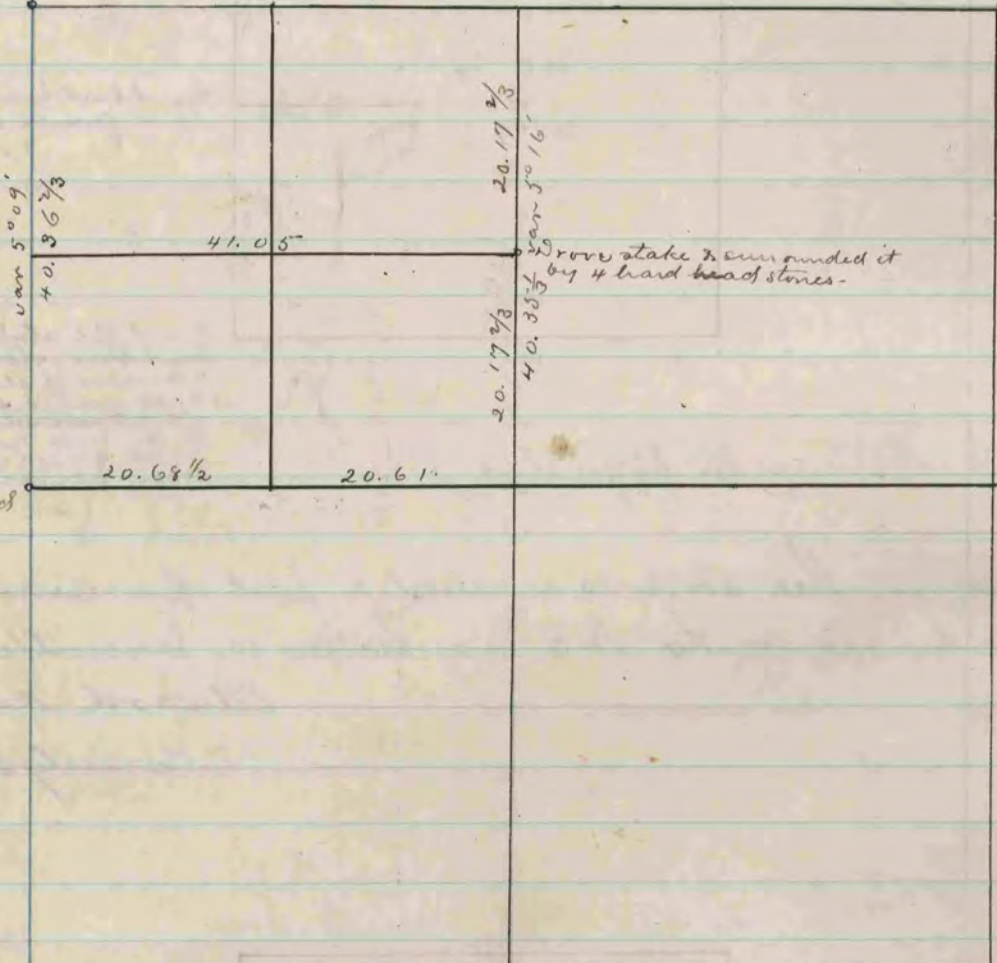 var 5° 09'
40. 36 2/3
41. 05
20. 17 2/3
20. 17 2/3
var 5° 16'
40. 35 1/3
Drove stake & surrounded it
by 4 hard head stones-
20. 68 1/2
20. 61